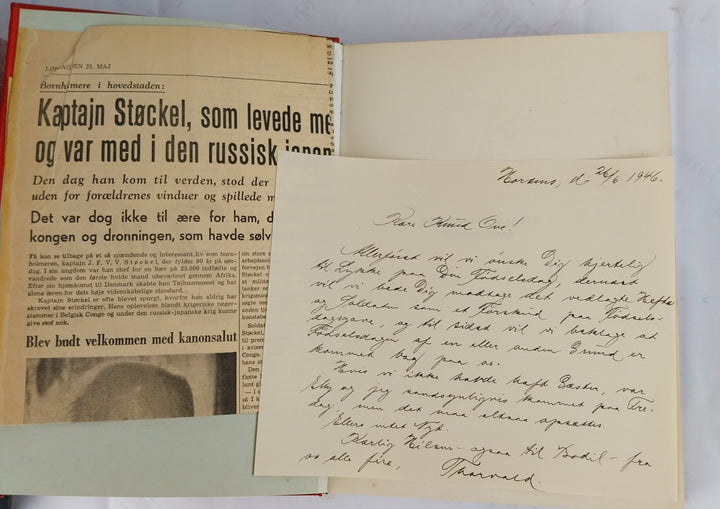 LØRDAGEN 25. MAJ
Bornholmere i hovedstaden:
Kaptajn Støckel, som levede me
og var med i den russisk japan
Den dag han kom til verden, stod der
uden for forældrenes vinduer og spillede m
Det var dog ikke til ære for ham, d
kongen og dronningen, som havde sølv
Få kan se tilbage på et så spændende og interessant liv som born-
holmeren, kaptajn J. F. V. V. Støckel, der fylder 80 år på søn-
dag. I sin ungdom var han chef for en hær på 23.000 indfødte og
vandrede som den første hvide mand ubevæbnet gennem Afrika.
Efter sin hjemkomst til Danmark skabte han Tøjhusmuseet og har
alene æren for dets høje videnskabelige standard.
Kaptajn Støckel er ofte blevet spurgt, hvorfor han aldrig har
skrevet sine erindringer. Hans oplevelser blandt krigeriske neger-
stammer i Belgisk Congo og under den russisk-japanske krig kunne
give stof nok.
Blev budt velkommen med kanonsalut
sin store s
arbejdsom
forvejen h
Støckel v
Soldat
Støckel,
til prem
i avisen
Congo.
hans st
Den
flotte
lunt gl
— I s
blive
Horsens, d. 26/6 1946.
Kære Knud Ove!
Allerførst vil vi ønske Dig hjertelig
til Lykke paa Din Fødselsdag, dernæst
vil vi bede Dig modtage det vedlagte Hefte
og Soldater som et Forskud paa Fødsels-
dagsgave, og til sidst vil vi beklage at
Fødselsdagen af en eller anden Grund er
kommet bag paa os.
Hvis vi ikke havde haft Gæster, var
Elly og jeg sandsynligvis kommet paa Fre-
dag, men det maa altsaa opsættes.
Ellers intet Nyt.
Kærlig Hilsen - ogsaa til Bodil - fra
os alle fire, Thorvald.